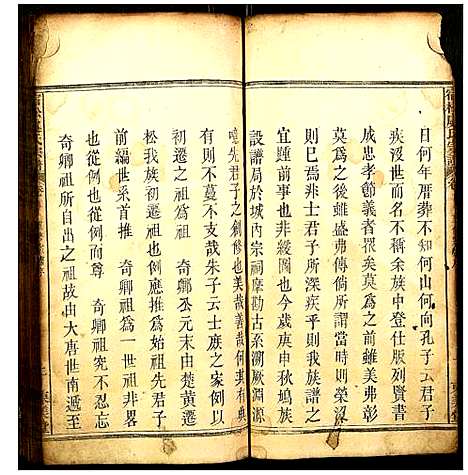 宿松 氏宗譜 卷
日何年厝葬不知何山何向孔子云君子
疾沒世而名不稱族中登仕版列賢書
成忠孝節義者罹矣莫爲之前雖美弗彰
莫爲之後雖盛弗傳倘所謂當時則榮沒
則已焉此君子所深疾乎則我族譜之
宜踵前事也非綬圖也今歲庚申秋鳩族
設譜局於城內宗祠摩勘古系溯厥淵源
噫先君子之創修也美哉善哉何其有典
有則而可法可誦哉朱子云士族之家以
初遷之祖爲祖 公元末由楚黃遷
松我族初遷祖也例應首推 奇卿祖爲
前編世系首推 奇卿祖爲一世祖
也從例也例而尊 奇卿祖究不忍忘
奇卿祖所自出之祖故由大唐世南遞至